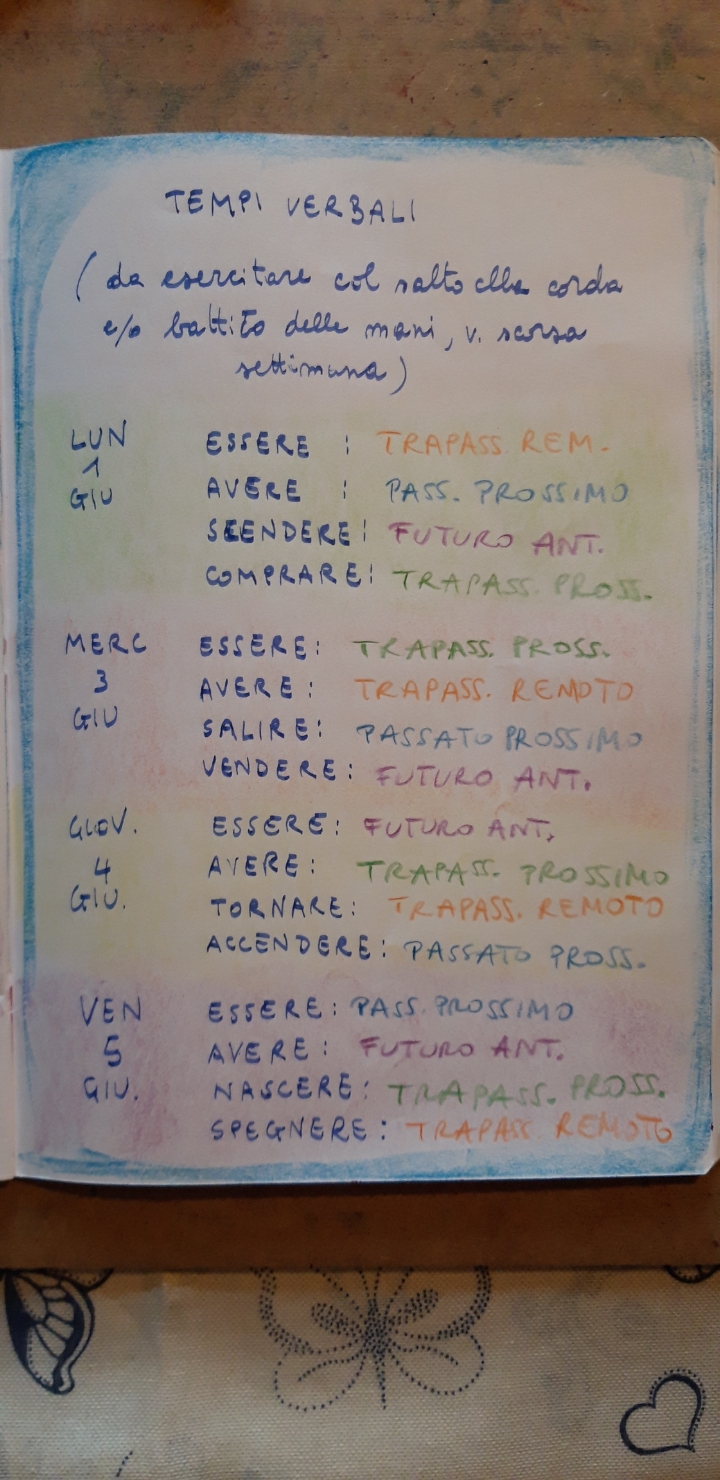 TEMPI VERBALI
(da esercitare col salto alla corda
e/o battito delle mani, v. scorsa
settimana)
LUN ESSERE : TRAPASS. REM.
1
GIU AVERE : PASS. PROSSIMO
SCENDERE: FUTURO ANT.
COMPRARE: TRAPASS. PROSS.
MERC ESSERE: TRAPASS. PROSS.
3 AVERE: TRAPASS. REMOTO
GIU SALIRE: PASSATO PROSSIMO
VENDERE: FUTURO ANT.
GIOV. ESSERE: FUTURO ANT.
4 AVERE: TRAPASS. PROSSIMO
GIU. TORNARE: TRAPASS. REMOTO
ACCENDERE: PASSATO PROSS.
VEN ESSERE: PASS. PROSSIMO
5 AVERE: FUTURO ANT.
GIU. NASCERE: TRAPASS. PROSS.
SPEGNERE: TRAPASS. REMOTO